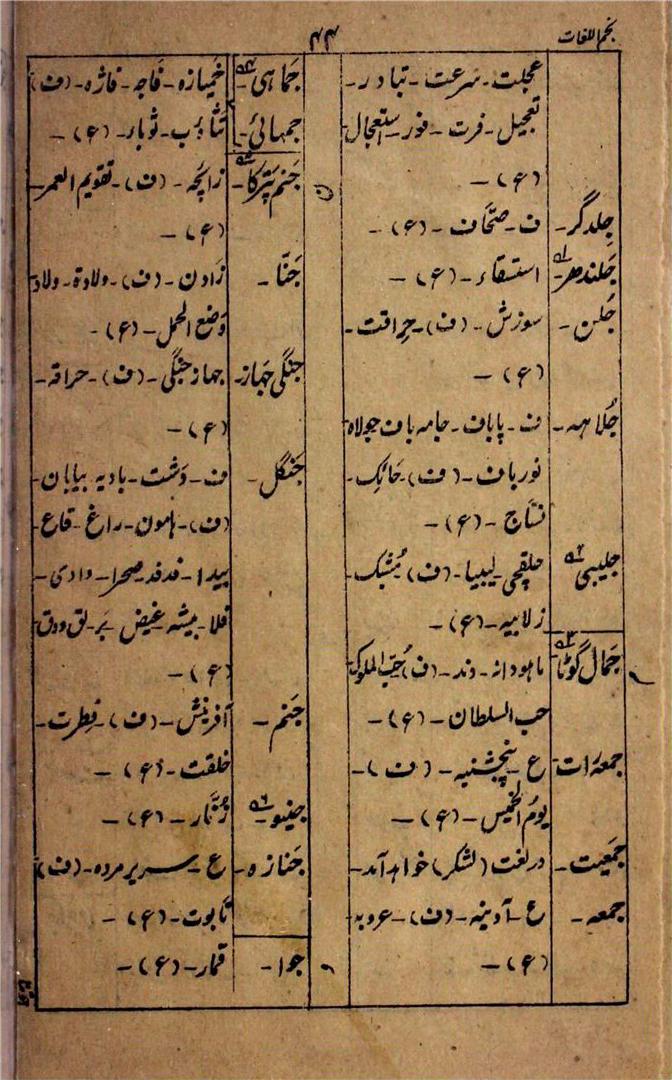 نجم اللغات
۴۴
عجلت - سرعت - تبادر -
تعجیل - فرت - فور - استعجال
(ع) -
جلدگر - ف - صحّاف - (ع) -
جلندھر - استسقاء - (ع) -
جلن - سوزش - (ف) - حراقت -
(ع) -
جُلاہہ - ف - پاباف - جامہ باف جولاہ
نورباف - (ف) - حائک -
نسّاج - (ع) -
جلیبی - حلقچی - لیبیا - (ف) مُشبک -
زلابیہ - (ع) -
جمال گوٹا - ماہودانہ - دند - (ف) حُبّ الملوک
حب السلطان - (ع) -
جمعرات - ع - پنجشنبہ - (ف) -
یوم الخمیس - (ع) -
جمعیت - در لغت (لشکر) خواہد آمد -
جمعہ - ع - آدینہ - (ف) - عروبہ
(ع) -
جماہی - خمیازہ - فاجہ - فاژہ - (ف)
جمہائی - تثاؤب - ثوباء - (ع) -
جنم پترکا - زائچہ - (ف) - تقویم العمر -
(ع) -
جننا - زادن - (ف) - ولادۃ - ولاد
وضع الحمل - (ع) -
جنگی جہاز - جہاز جنگی - (ف) - حراقہ -
(ع) -
جنگل - ف - دشت - بادیہ بیابان -
(ف) - ہامون - راغ - قاع -
بیدا - فدفد صحرا - وادی -
فلا - بیشہ - غیض - بَر - لق ودق
(ع) -
جنم - آفرینش - (ف) - فطرت -
خلقت - (ع) -
جنیو - زُنّار - (ع) -
جنازہ - ع - سریر مردہ - (ف)
تابوت - (ع) -
جوا - قمار - (ع) -